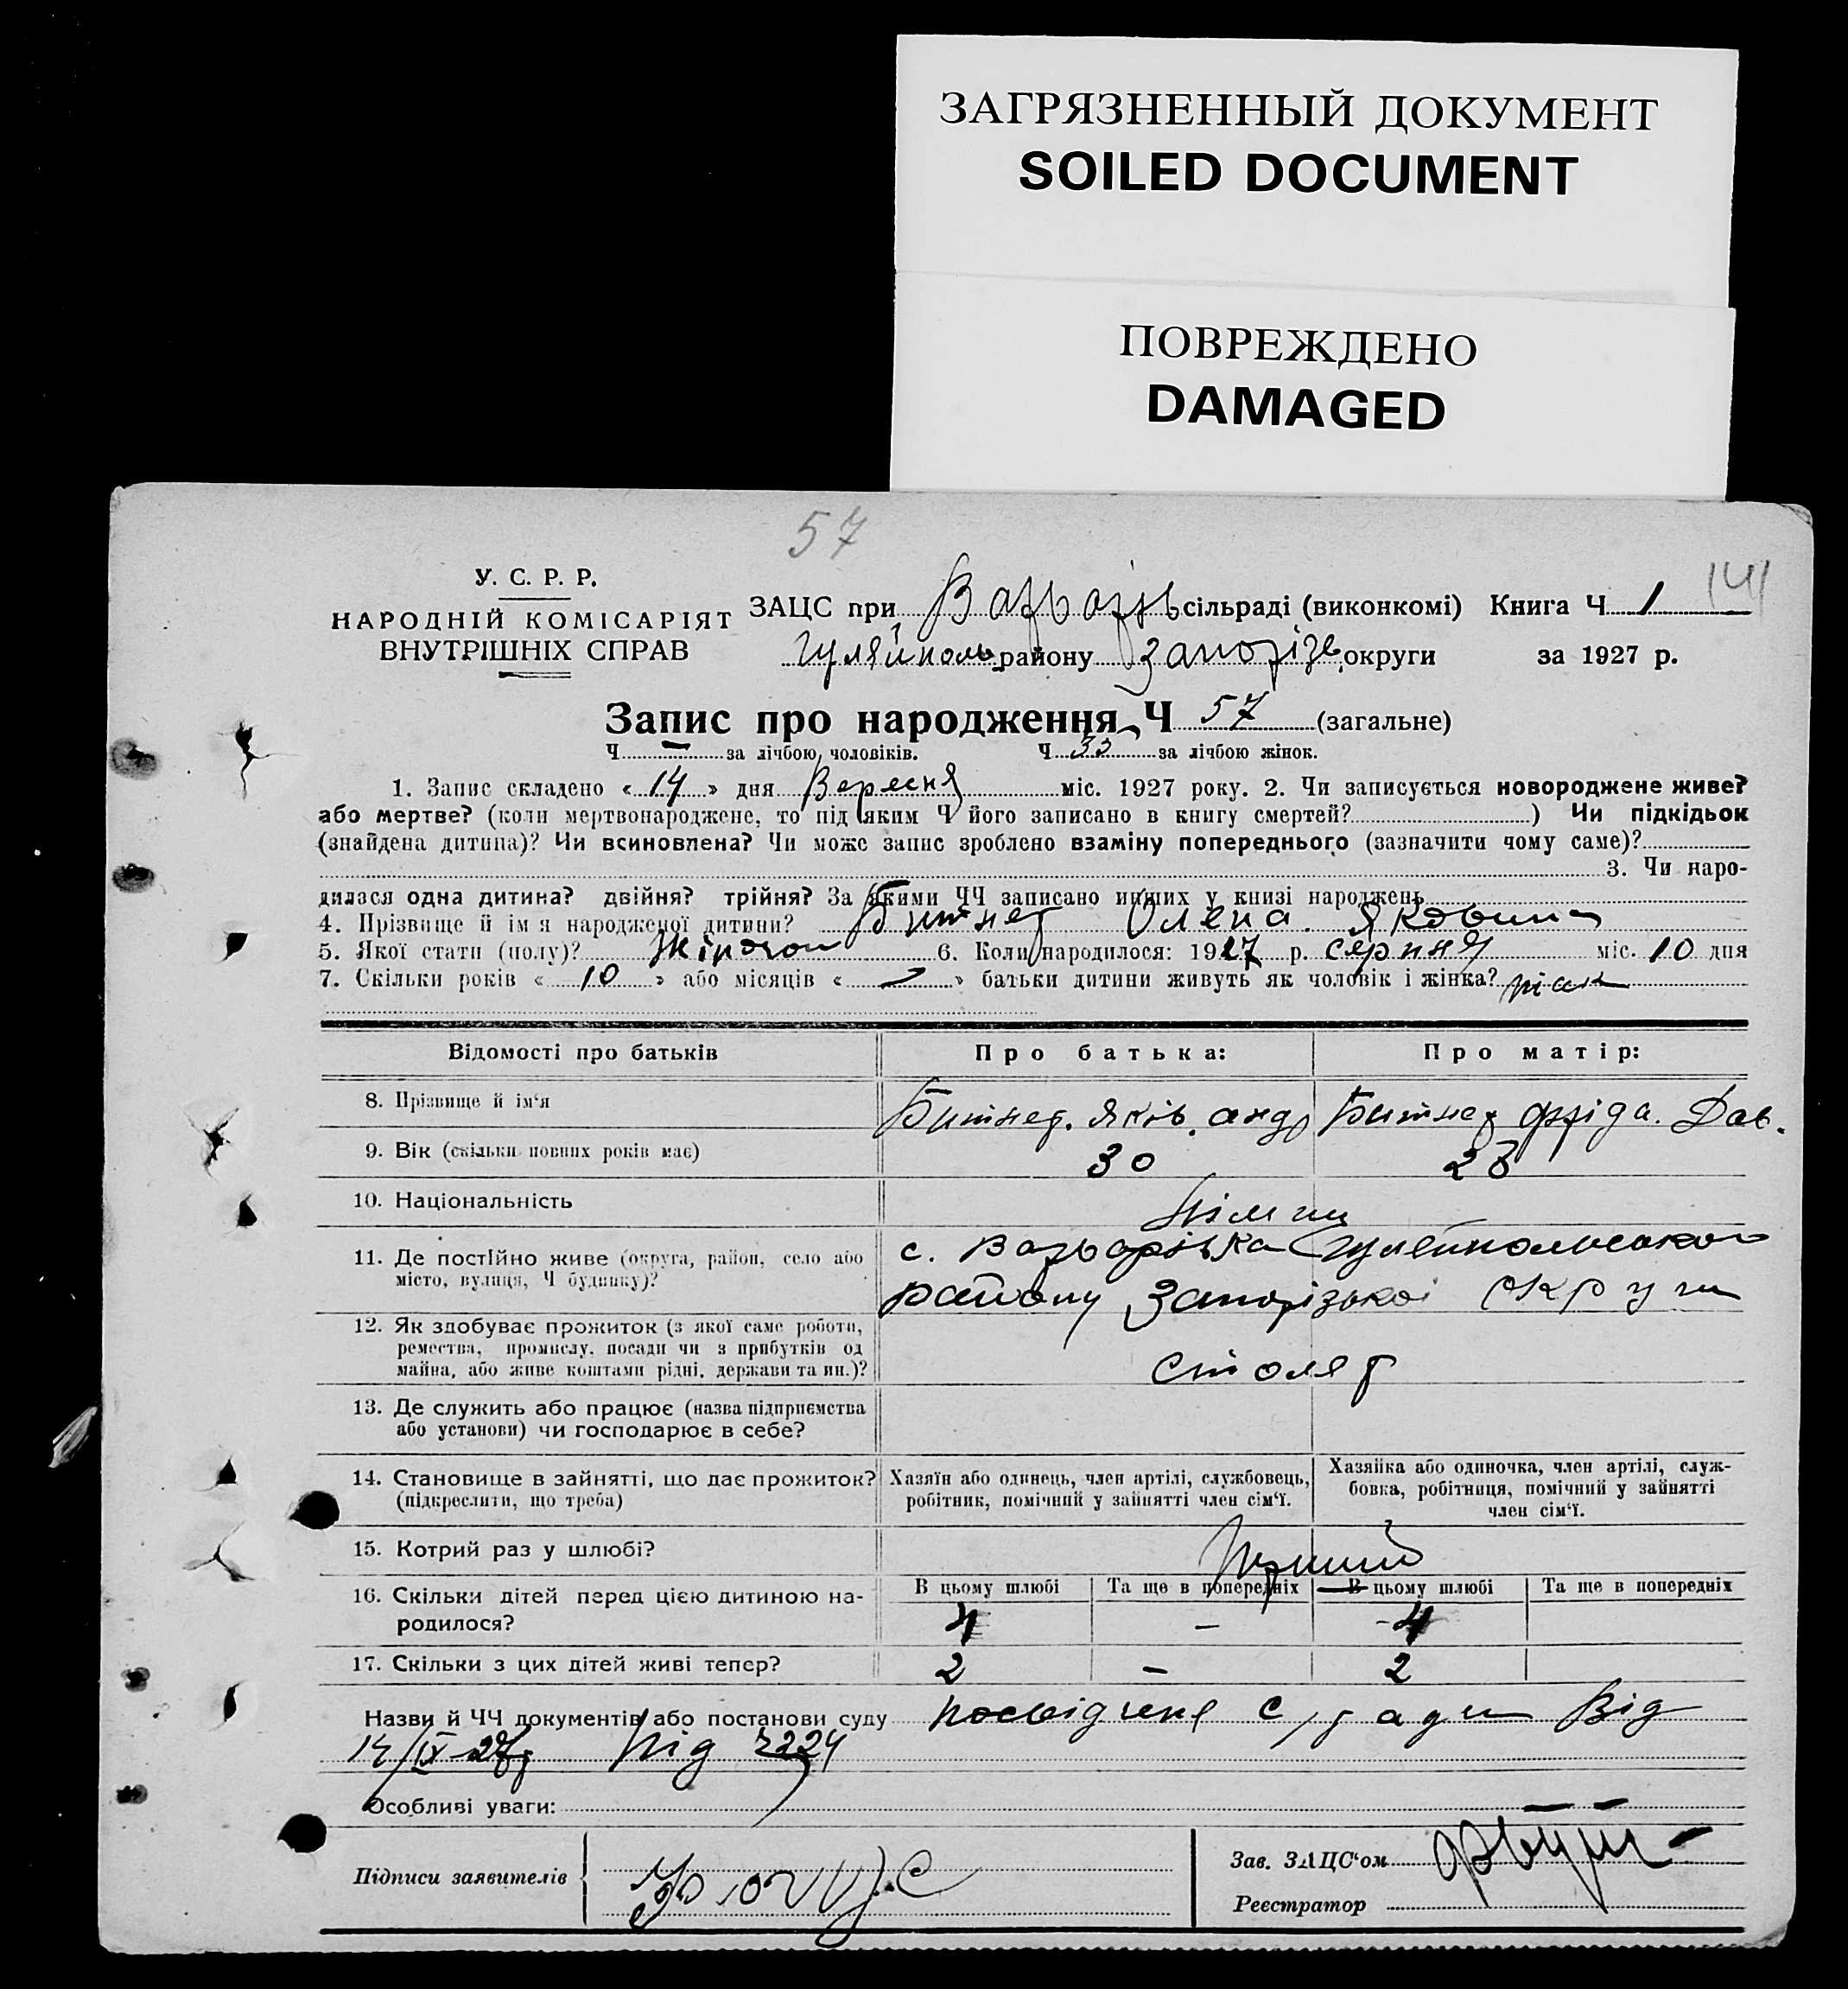 ЗАГРЯЗНЕННЫЙ ДОКУМЕНТ
SOILED DOCUMENT
ПОВРЕЖДЕНО
DAMAGED
57
141
У. С. Р. Р.
НАРОДНІЙ КОМІСАРІЯТ
ВНУТРІШНІХ СПРАВ
ЗАЦС при Варварів сільраді (виконкомі) Книга Ч 1
Гуляйполь району Запорізь округи за 1927 р.
Запис про народження Ч 57 (загальне)
Ч — за лічбою чоловіків. Ч 33 за лічбою жінок.
1. Запис складено « 14 » дня Вересня міс. 1927 року. 2. Чи записується новороджене живе?
або мертве? (коли мертвонароджене, то під яким Ч його записано в книгу смертей? ) Чи підкідьок
(знайдена дитина)? Чи всиновлена? Чи може запис зроблено взаміну попереднього (зазначити чому саме)?
3. Чи наро-
дилася одна дитина? двійня? трійня? За якими ЧЧ записано инших у книзі народжень
4. Прізвище й ім'я народженої дитини? Битнер Олена Яковина
5. Якої стати (полу)? Жіночои 6. Коли народилося: 1927 р. серпня міс. 10 дня
7. Скільки років « 10 » або місяців « — » батьки дитини живуть як чоловік і жінка? так
Відомості про батьків Про батька: Про матір:
8. Прізвище й ім'я Битнер. Яків. Андр Битнер Фріда. Дав.
9. Вік (скільки повних років має) 30 28
10. Національність Німци
11. Де постійно живе (округа, район, село або місто, вулиця, Ч будинку)? с. Варварівка Гуляйпольського
району Запорізької округи
12. Як здобуває прожиток (з якої саме роботи,
ремества, промислу, посади чи з прибутків од
майна, або живе коштами рідні, держави та ин.)? столяр
13. Де служить або працює (назва підприємства
або установи) чи господарює в себе?
14. Становище в зайнятті, що дає прожиток?
(підкреслити, що треба)
Хазяїн або одинець, член артілі, службовець,
робітник, помічний у зайнятті член сім'ї.
Хазяйка або одиночка, член артілі, служ-
бовка, робітниця, помічний у зайнятті
член сім'ї.
15. Котрий раз у шлюбі? Перший
В цьому шлюбі Та ще в попередніх В цьому шлюбі Та ще в попередніх
16. Скільки дітей перед цією дитиною на-
родилося? 4 — 4
17. Скільки з цих дітей живі тепер? 2 — 2
Назви й ЧЧ документів або постанови суду посвідченя с/ради Від
14/IX-27р під 2224
Особливі уваги: — —
Підписи заявителів
Зав. ЗАЦС'ом
Реєстратор